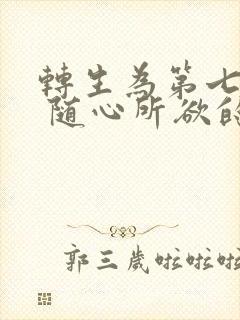 轉生為第七
隨心所欲的
郭三歲啦啦啦